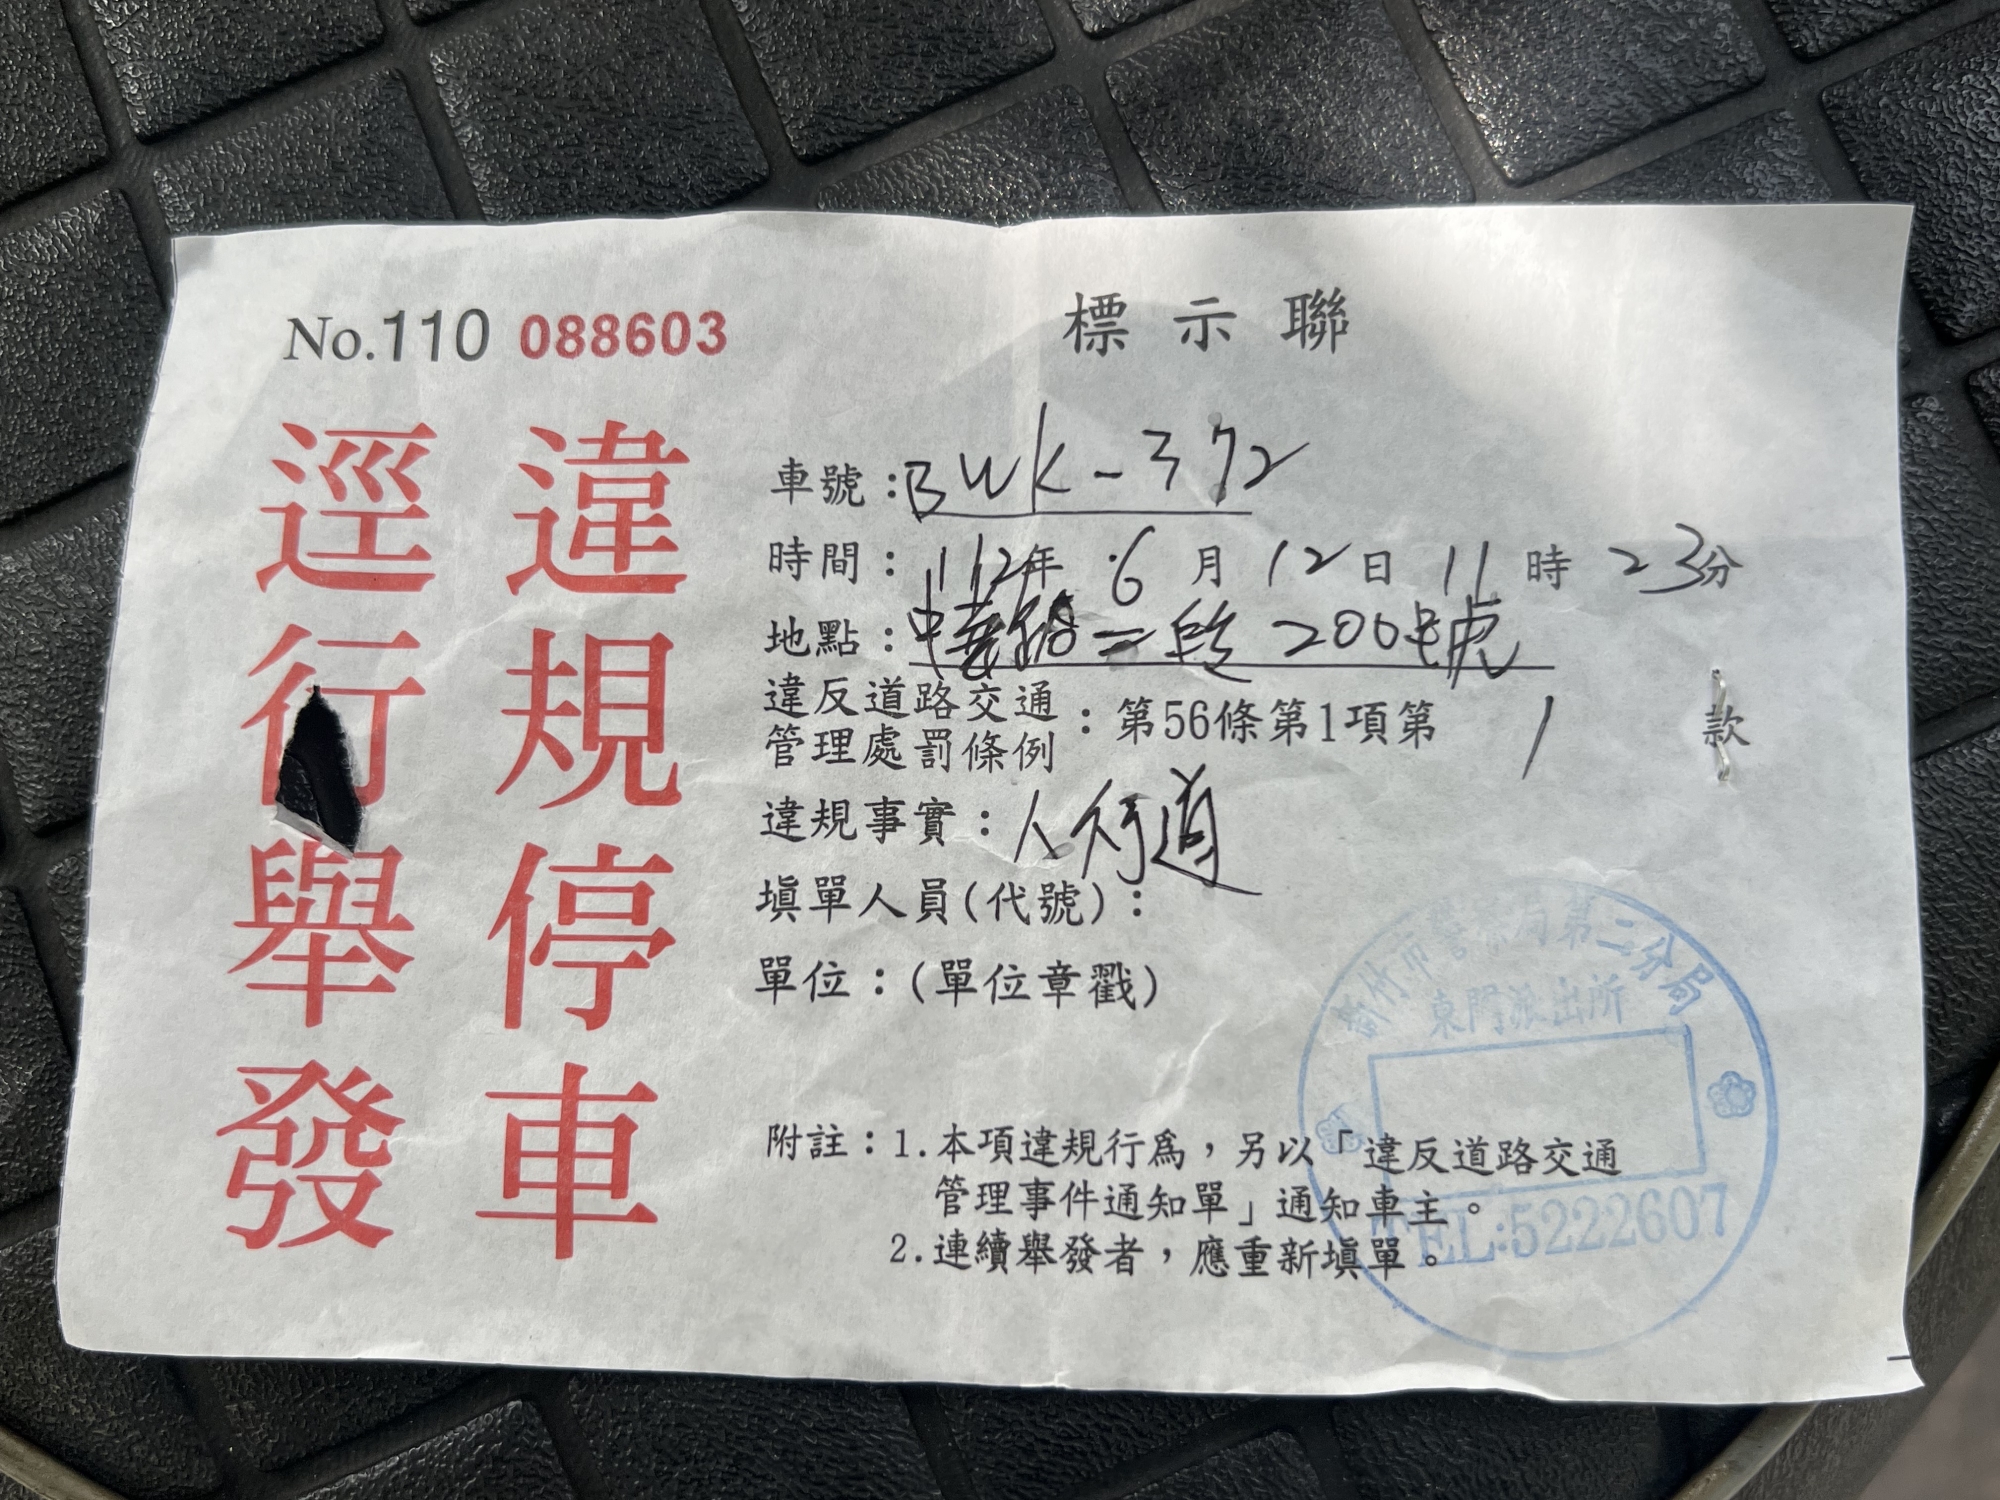 No.110 088603
標示聯
違規停車
逕行舉發
車號：BWK-372
時間：112年 6月12日11時23分
地點：中華路二段200號
違反道路交通
管理處罰條例：第56條第1項第1款
違規事實：人行道
填單人員(代號)：
單位：(單位章戳)
新竹市警察局第二分局
東門派出所
TEL:5222607
附註：1.本項違規行為，另以「違反道路交通
管理事件通知單」通知車主。
2.連續舉發者，應重新填單。